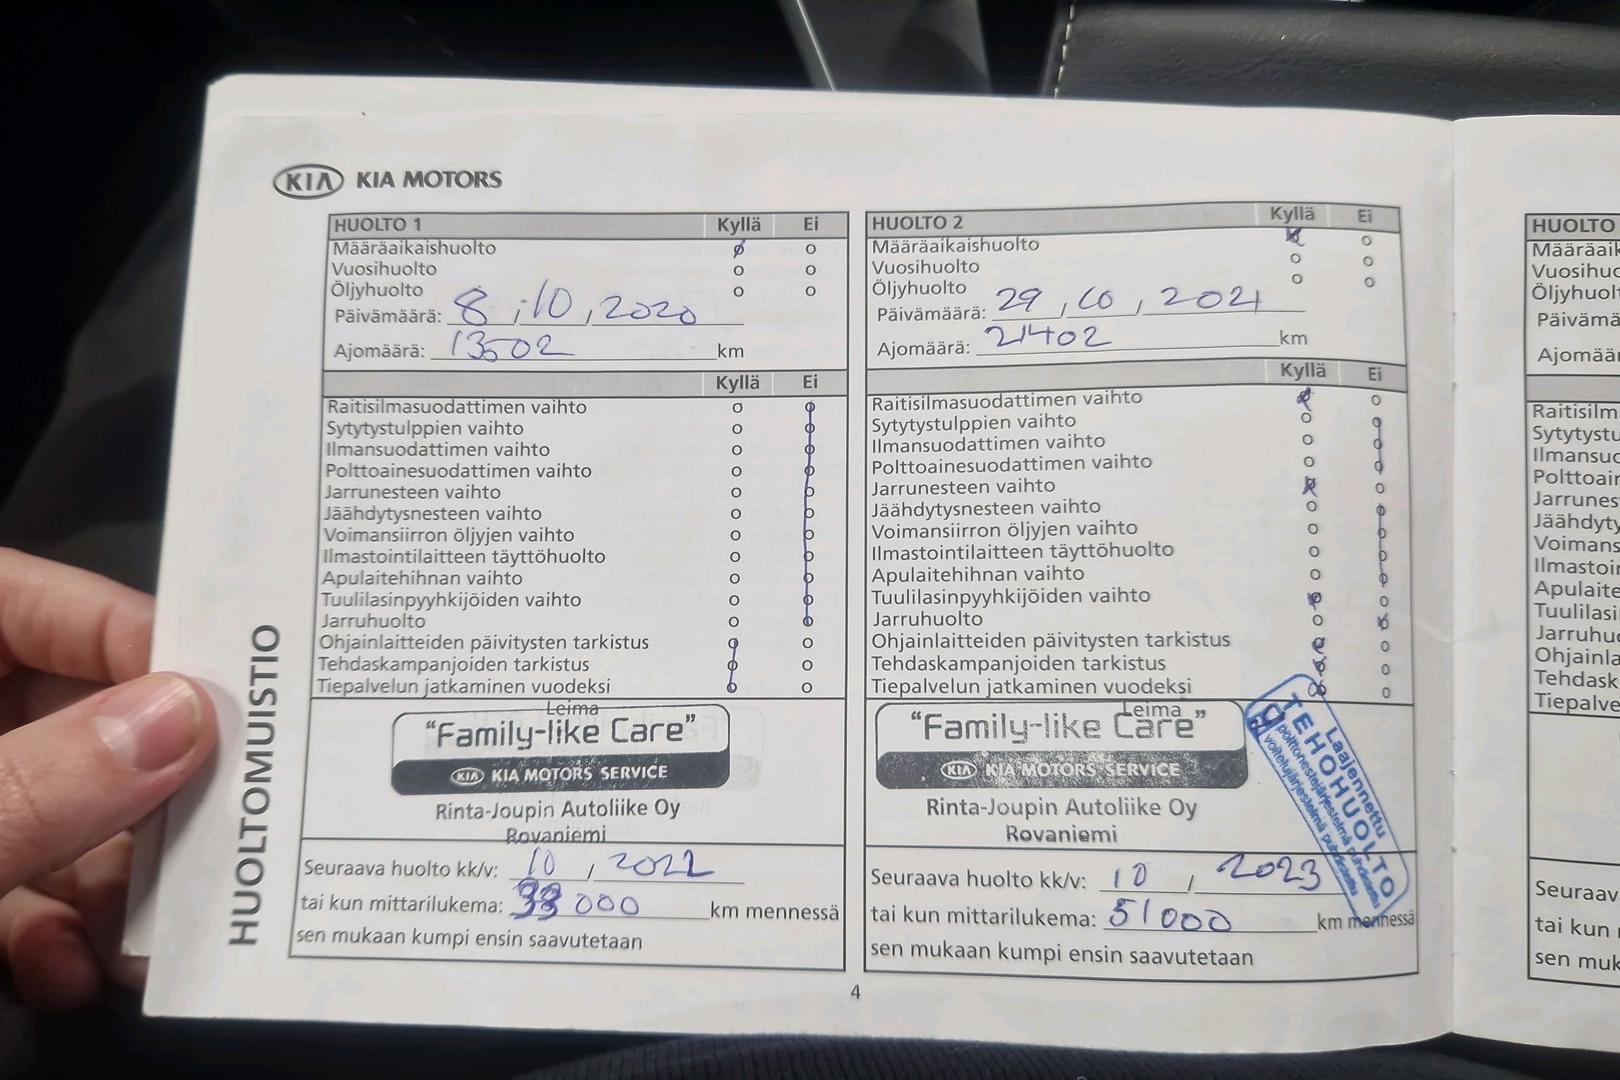 KIA KIA MOTORS
HUOLTOMUISTIO
HUOLTO 1 Kyllä Ei
Määräaikaishuolto
Vuosihuolto
Öljyhuolto
Päivämäärä: 8.10.2020
Ajomäärä: 13502 km
Kyllä Ei
Raitisilmasuodattimen vaihto
Sytytystulppien vaihto
Ilmansuodattimen vaihto
Polttoainesuodattimen vaihto
Jarrunesteen vaihto
Jäähdytysnesteen vaihto
Voimansiirron öljyjen vaihto
Ilmastointilaitteen täyttöhuolto
Apulaitehihnan vaihto
Tuulilasinpyyhkijöiden vaihto
Jarruhuolto
Ohjainlaitteiden päivitysten tarkistus
Tehdaskampanjoiden tarkistus
Tiepalvelun jatkaminen vuodeksi
Leima
"Family-like Care"
KIA KIA MOTORS SERVICE
Rinta-Joupin Autoliike Oy
Rovaniemi
Seuraava huolto kk/v: 10 / 2022
tai kun mittarilukema: 33 000 km mennessä
sen mukaan kumpi ensin saavutetaan
HUOLTO 2 Kyllä Ei
Määräaikaishuolto
Vuosihuolto
Öljyhuolto
Päivämäärä: 29.10.2021
Ajomäärä: 21402 km
Kyllä Ei
Raitisilmasuodattimen vaihto
Sytytystulppien vaihto
Ilmansuodattimen vaihto
Polttoainesuodattimen vaihto
Jarrunesteen vaihto
Jäähdytysnesteen vaihto
Voimansiirron öljyjen vaihto
Ilmastointilaitteen täyttöhuolto
Apulaitehihnan vaihto
Tuulilasinpyyhkijöiden vaihto
Jarruhuolto
Ohjainlaitteiden päivitysten tarkistus
Tehdaskampanjoiden tarkistus
Tiepalvelun jatkaminen vuodeksi
Leima
"Family-like Care"
KIA KIA MOTORS SERVICE
Rinta-Joupin Autoliike Oy
Rovaniemi
Laajennettu
TEHOHUOLTO
polttonestejärjestelmä puhdistettu
voitelujärjestelmä puhdistettu
Seuraava huolto kk/v: 10 / 2023
tai kun mittarilukema: 51000 km mennessä
sen mukaan kumpi ensin saavutetaan
4
HUOLTO
Määräaik
Vuosihuo
Öljyhuolt
Päivämä
Ajomäär
Raitisilm
Sytytystu
Ilmansuo
Polttoain
Jarrunes
Jäähdyty
Voimans
Ilmastoin
Apulaite
Tuulilasi
Jarruhuo
Ohjainla
Tehdask
Tiepalve
Seuraav
tai kun
sen muk